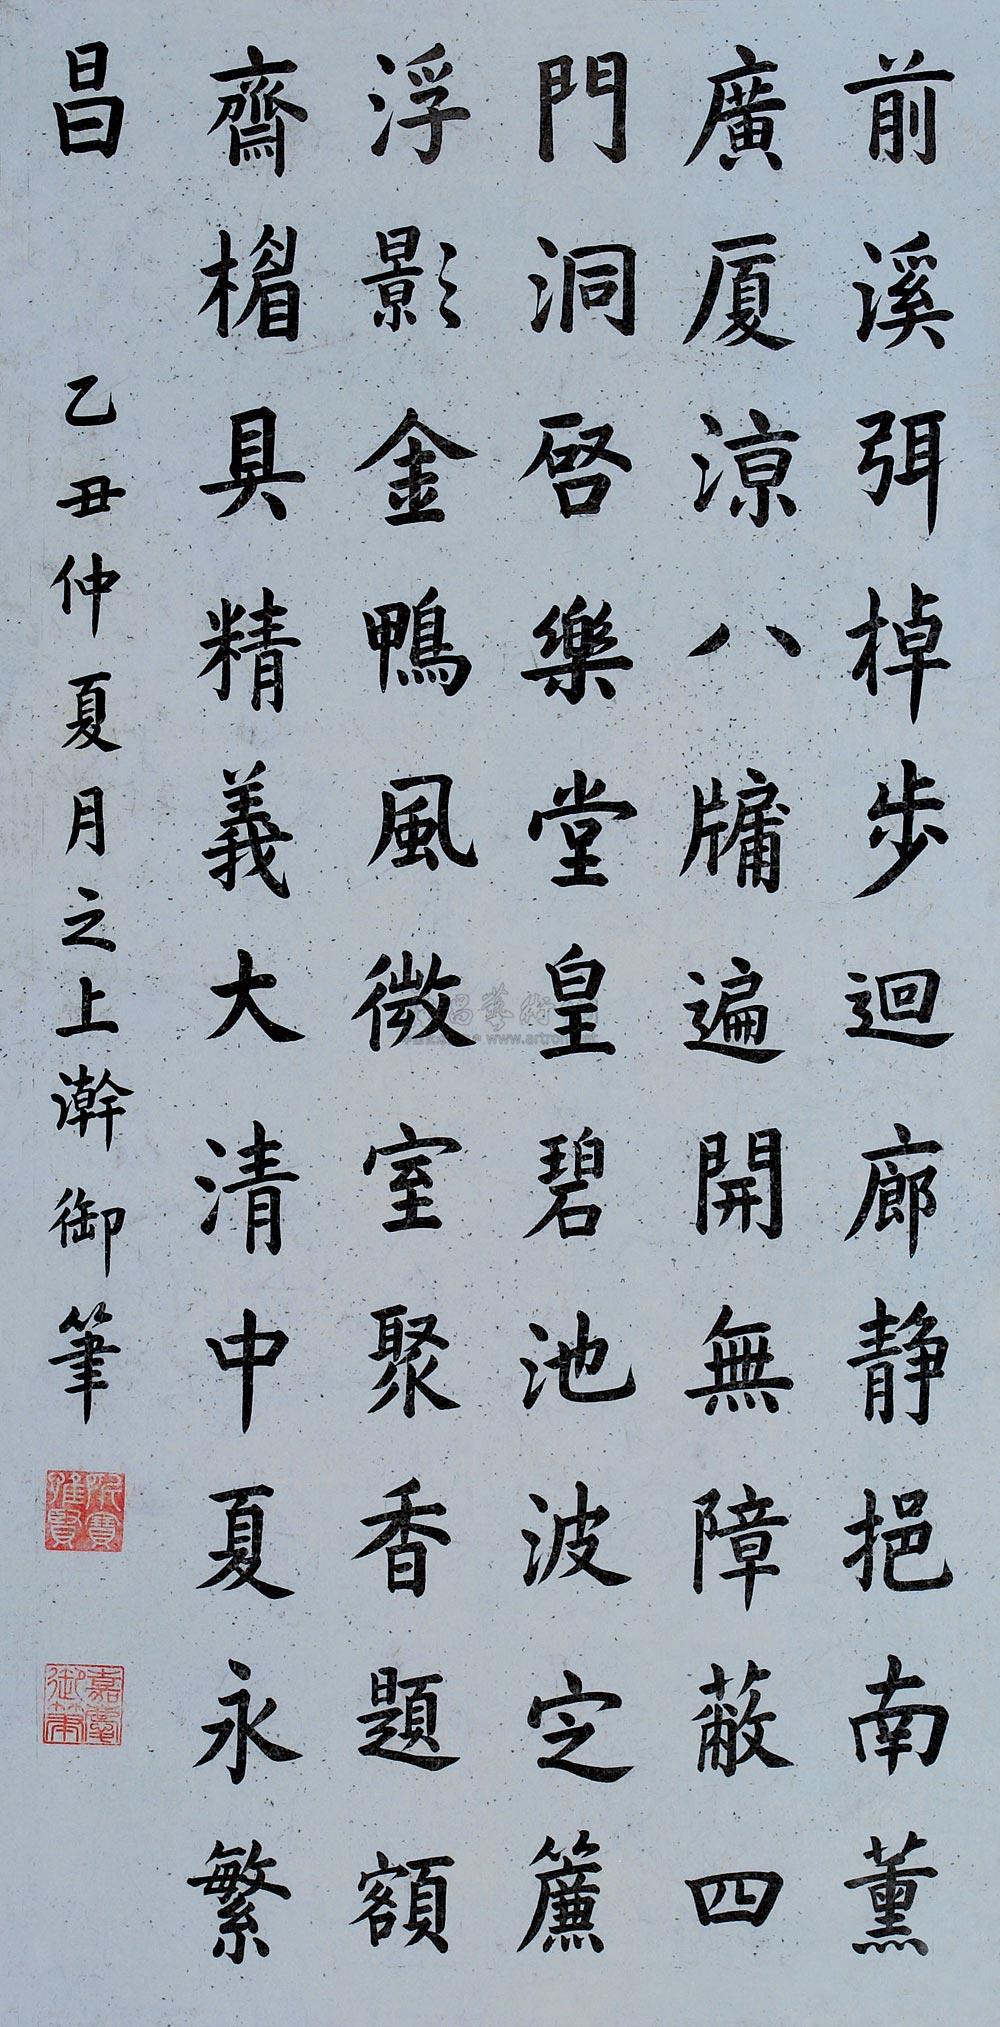 前溪弭棹步迴廊静挹南薰
廣厦涼八牖遍開無障蔽四
門洞啓樂堂皇碧池波定簾
浮影金鴨風微室聚香題額
齋楣具精義大清中夏永繁
昌
乙丑仲夏月之上澣御筆
所寶惟賢
嘉慶御筆
www.artron.net